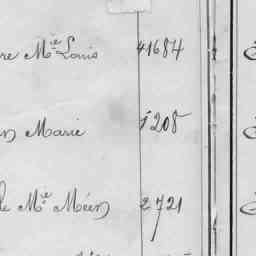 re Mie Louis 41684
n Marie 1208
le Mie Méen 2721